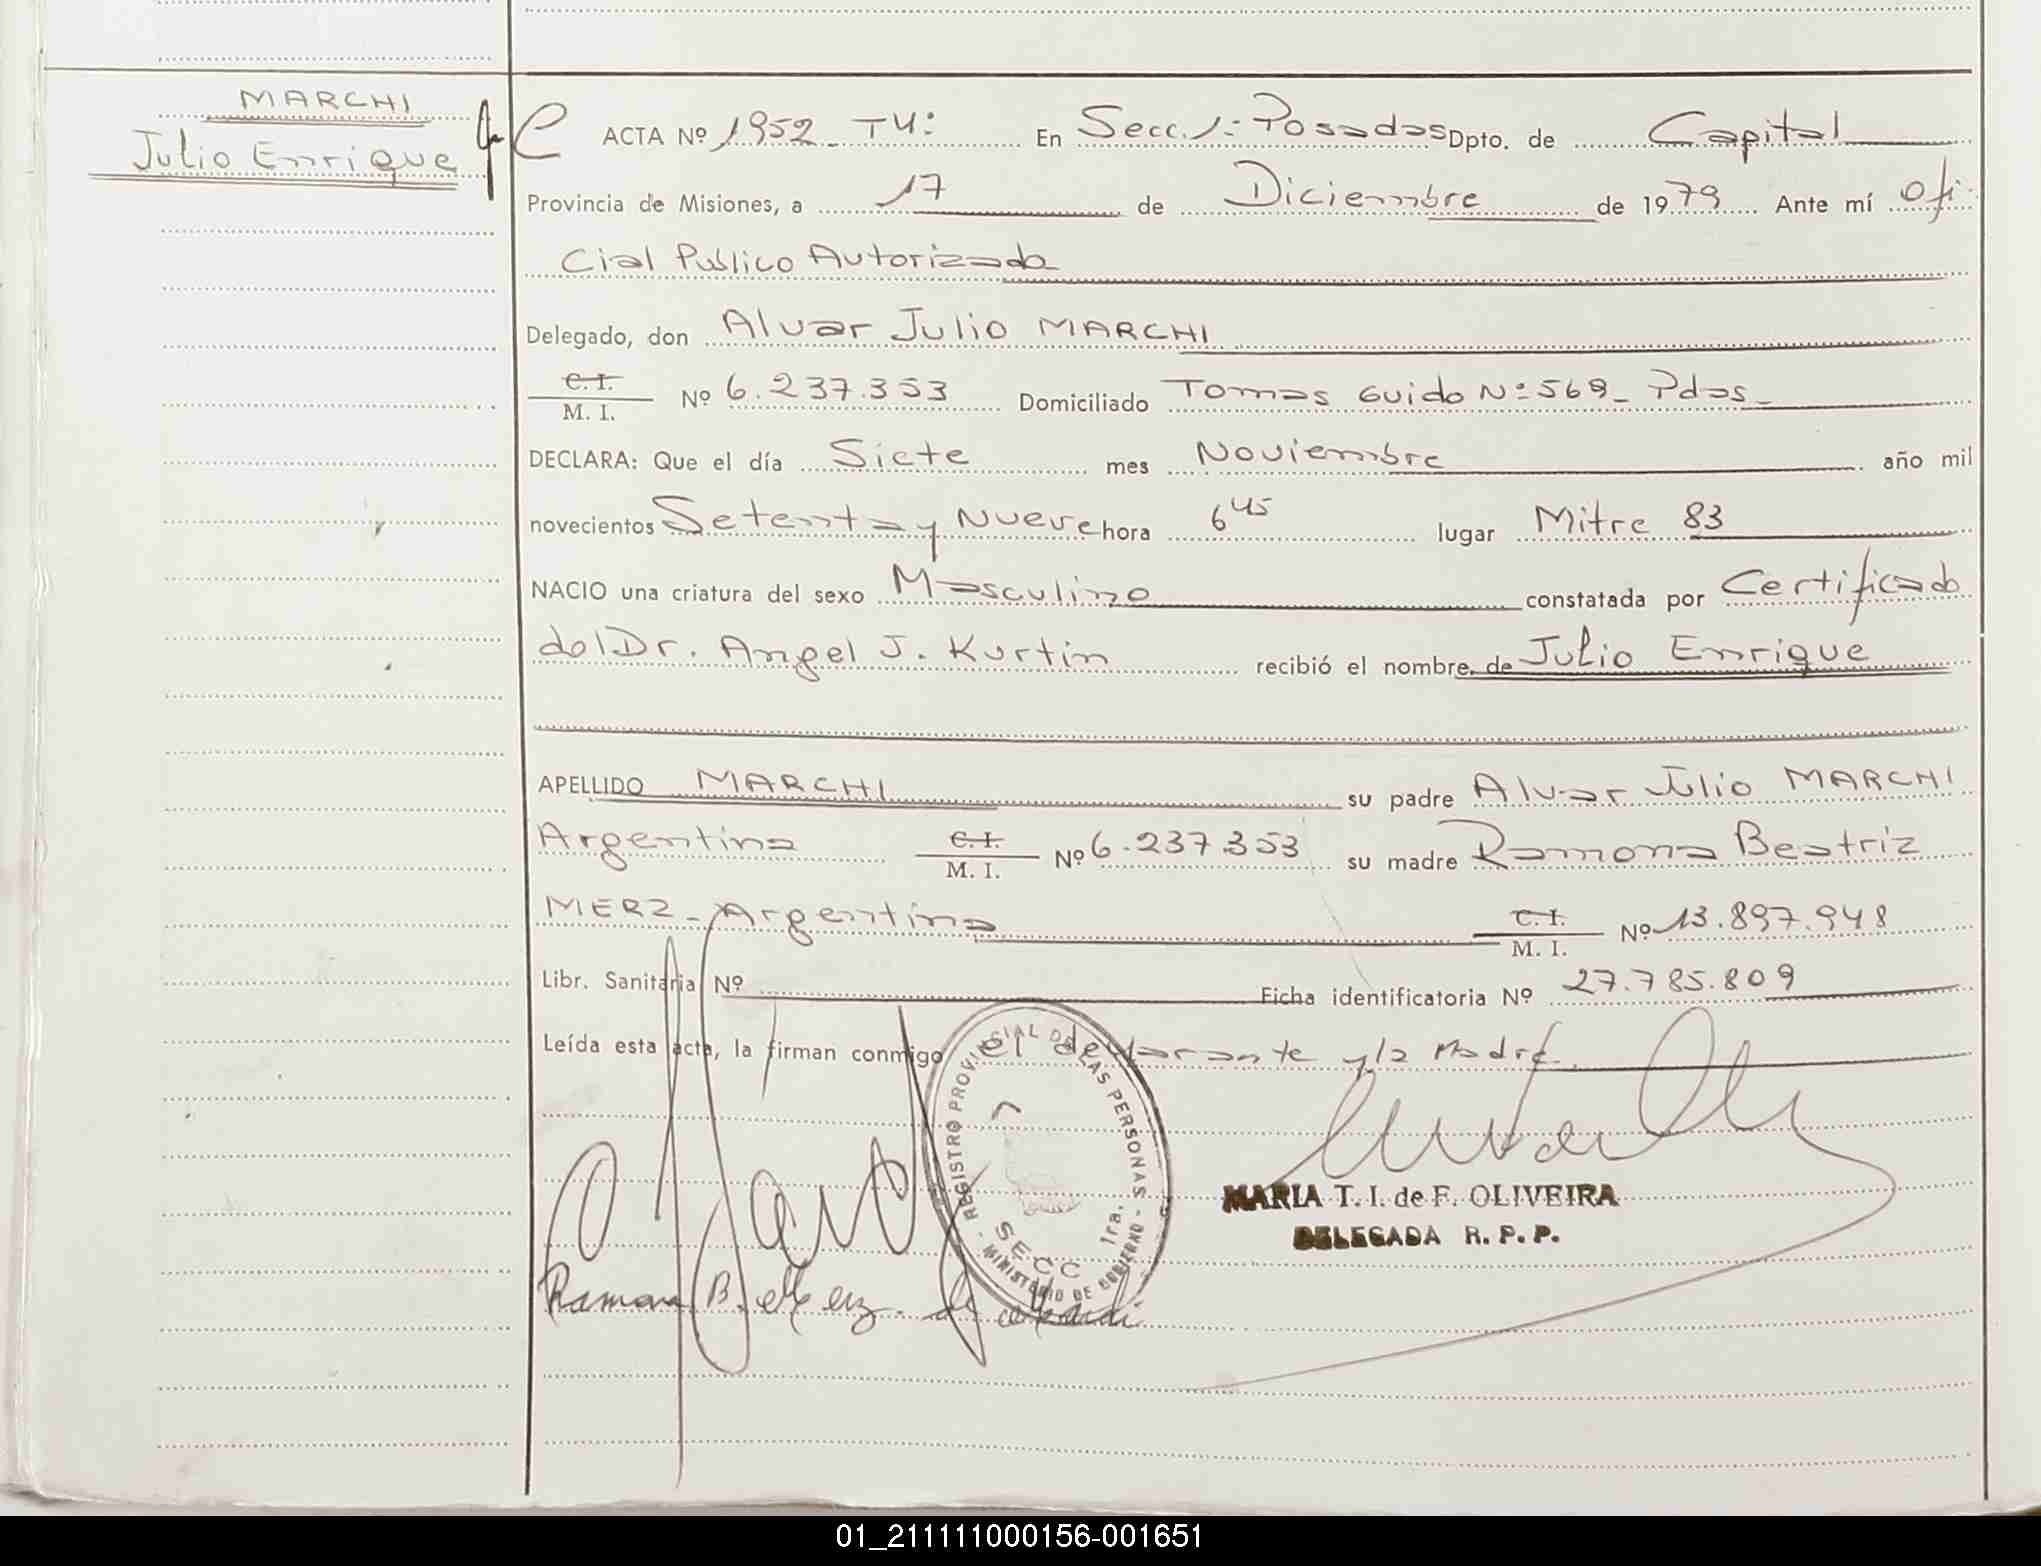 MARCHI
Julio Enrique
ACTA Nº 1952 - TU: En Secc. 1: Posadas Dpto. de Capital
Provincia de Misiones, a 17 de Diciembre de 1979 Ante mí Ofi-
cial Publico Autorizado
Delegado, don Alvar Julio MARCHI
C. I.
M. I. Nº 6.237.353 Domiciliado Tomas Guido Nº 569 - Pdas -
DECLARA: Que el día Siete mes Noviembre año mil
novecientos Setenta y Nueve hora 6 45 lugar Mitre 83
NACIO una criatura del sexo Masculino constatada por Certificado
del Dr. Angel J. Kurtin recibió el nombre de Julio Enrique
APELLIDO MARCHI su padre Alvar Julio MARCHI
Argentina C. I. M. I. Nº 6.237.353 su madre Ramona Beatriz
MERZ - Argentina C. I. M. I. Nº 13.897.948
Libr. Sanitaria Nº Ficha identificatoria Nº 27.785.809
Leída esta acta, la firman conmigo el declarante y la Madre.
REGISTRO PROVINCIAL DE LAS PERSONAS - MINISTERIO DE GOBIERNO -
SECC 1ra.
MARIA T. I. de F. OLIVEIRA
DELEGADA R. P. P.
Ramona B. Merz de Marchi
01_211111000156-001651